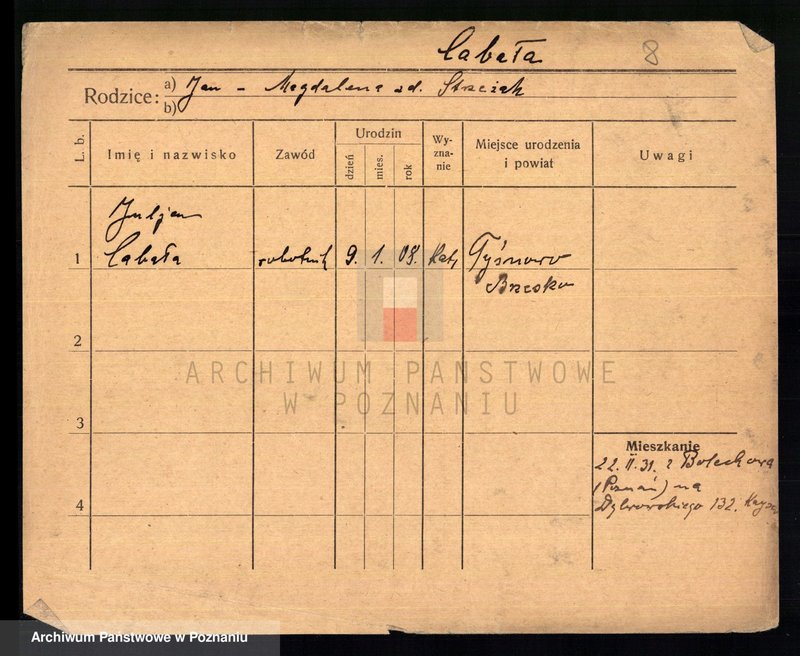 Cabała 8
Rodzice: a) Jan - Magdalena zd. Strzczak
b)
L. b. Imię i nazwisko Zawód Urodzin dzień mies. rok Wy-zna-nie Miejsce urodzenia i powiat Uwagi
Juljan
1 Cabała robotnik 9. 1. 08. kat. Tyśnowo
Brzesko
2
ARCHIWUM PAŃSTWOWE
W POZNANIU
3
Mieszkanie
22. II. 31. z Bolechowa
4 (Poznań) na
Dąbrowskiego 132.
Archiwum Państwowe w Poznaniu